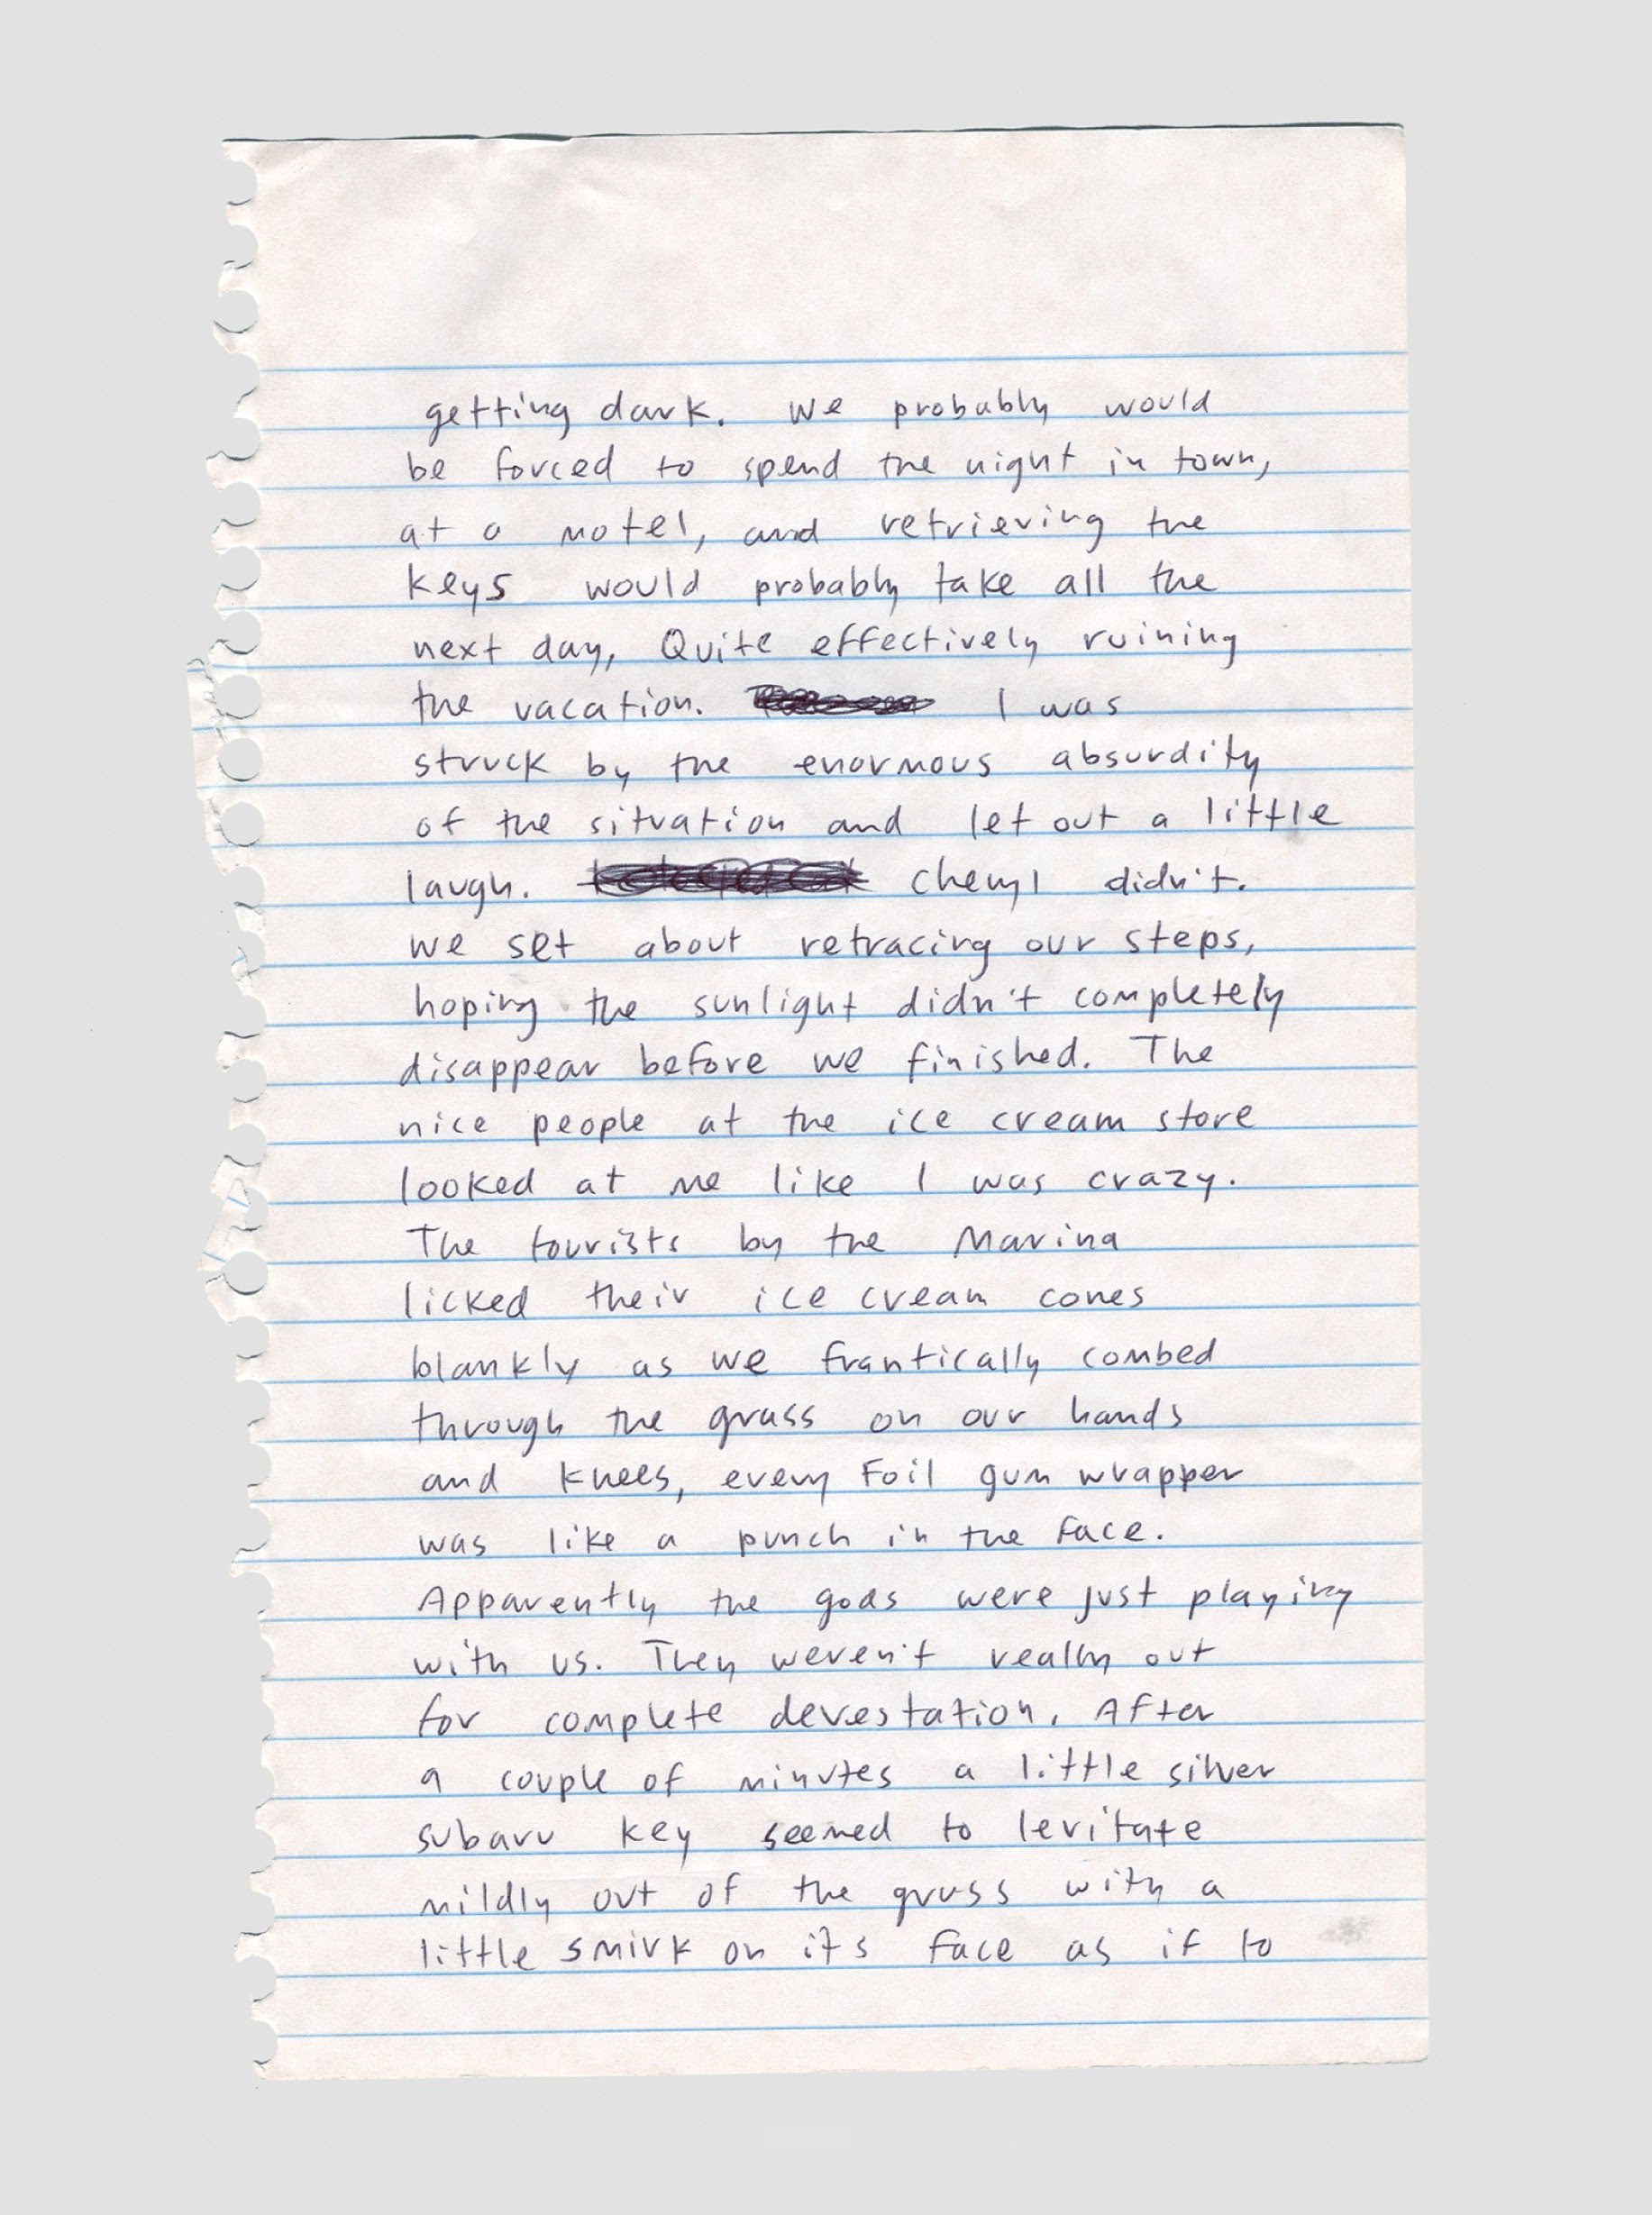 getting dark. We probably would
be forced to spend the night in town,
at a motel, and retrieving the
keys would probably take all the
next day, Quite effectively ruining
the vacation. I was
struck by the enormous absurdity
of the situation and let out a little
laugh. Cheryl didn't.
We set about retracing our steps,
hoping the sunlight didn't completely
disappear before we finished. The
nice people at the ice cream store
looked at me like I was crazy.
The tourists by the Marina
licked their ice cream cones
blankly as we frantically combed
through the grass on our hands
and knees, every foil gum wrapper
was like a punch in the face.
Apparently the gods were just playing
with us. They weren't really out
for complete devestation. After
a couple of minutes a little silver
subaru key seemed to levitate
mildly out of the grass with a
little smirk on it's face as if to